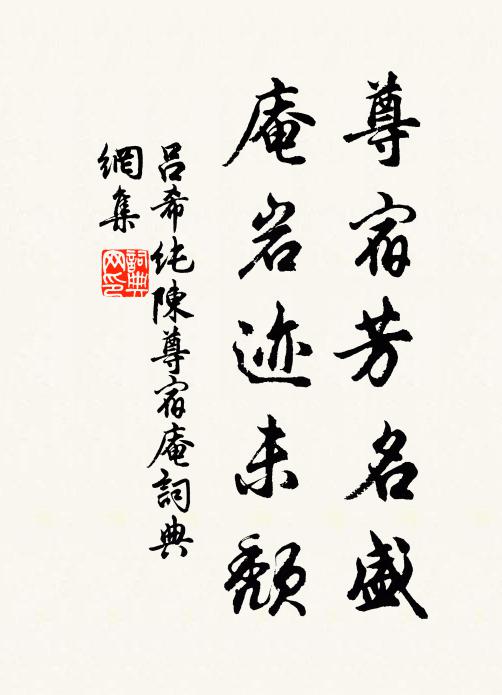 尊宿芳名盛
庵岩迹未颓
吕希純陳尊宿庵詞典
網集
詞典
网印